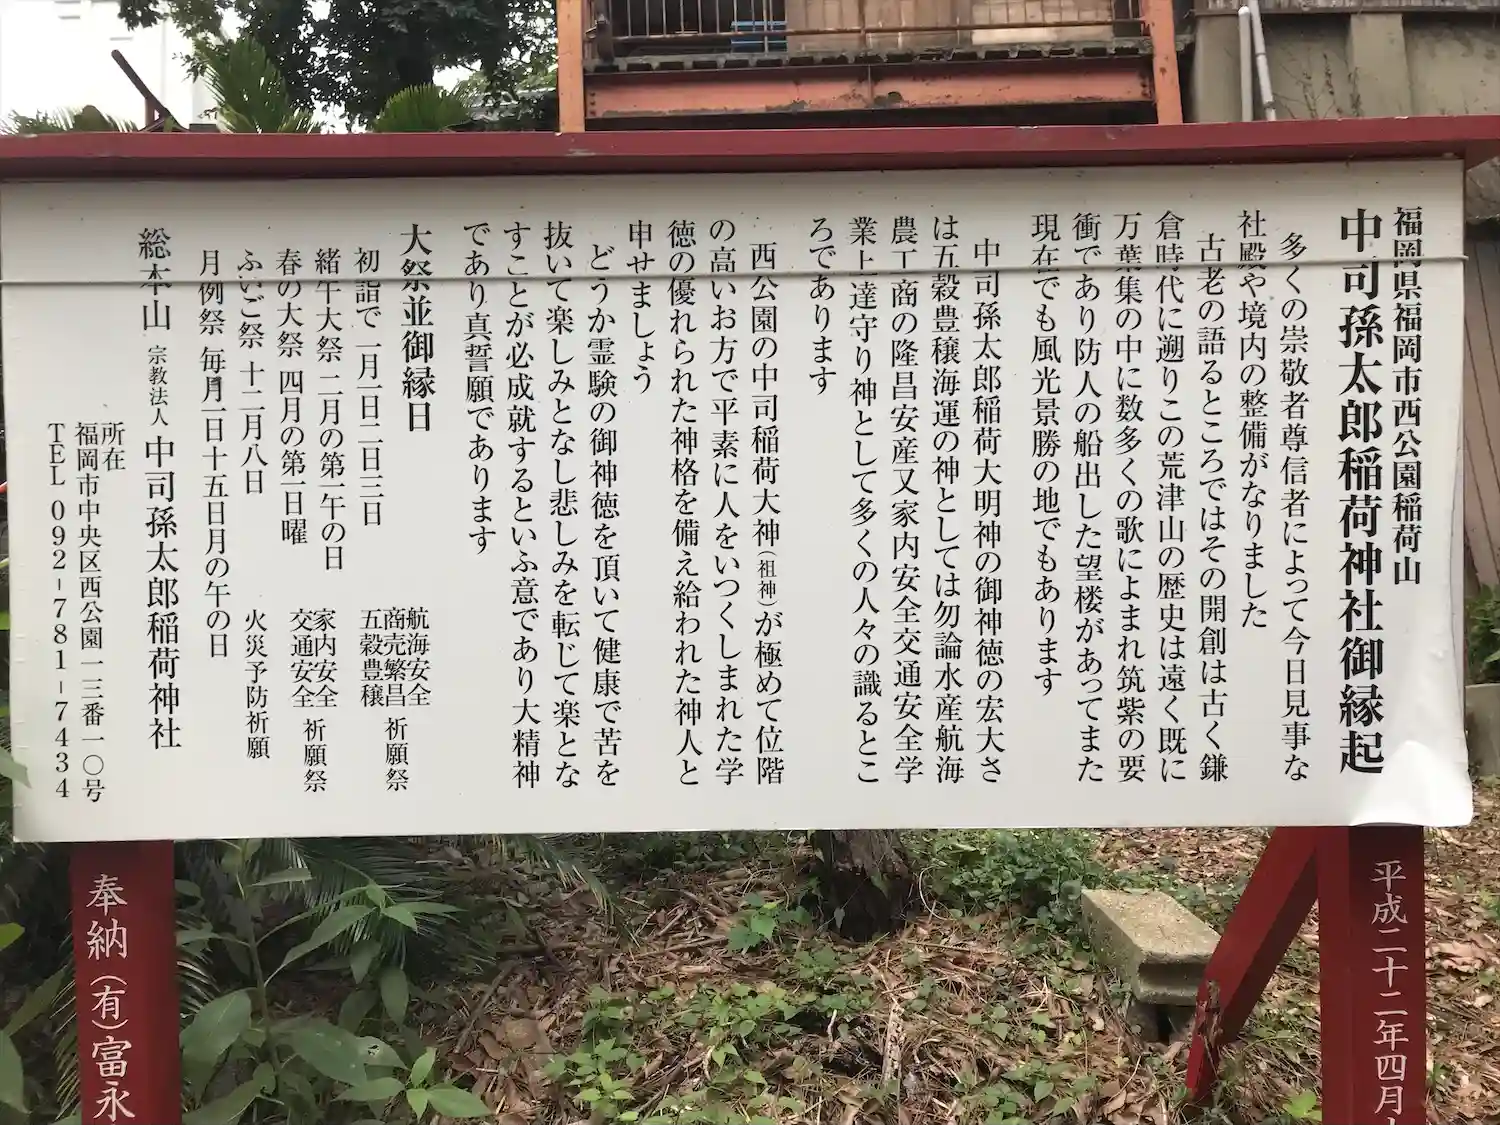 福岡県福岡市西公園稲荷山
中司孫太郎稲荷神社御縁起
多くの崇敬者尊信者によって今日見事な
社殿や境内の整備がなりました
古老の語るところではその開創は古く鎌
倉時代に遡りこの荒津山の歴史は遠く既に
万葉集の中に数多くの歌によまれ筑紫の要
衝であり防人の船出した望楼があってまた
現在でも風光景勝の地でもあります
中司孫太郎稲荷大明神の御神徳の宏大さ
は五穀豊穣海運の神としては勿論水産航海
農工商の隆昌安産又家内安全交通安全学
業上達守り神として多くの人々の識るとこ
ろであります
西公園の中司稲荷大神(祖神)が極めて位階
の高いお方で平素に人をいつくしまれた学
徳の優れられた神格を備え給われた神人と
申せましょう
どうか霊験の御神徳を頂いて健康で苦を
抜いて楽しみとなし悲しみを転じて楽とな
すことが必成就するといふ意であり大精神
であり真誓願であります
大祭並御縁日
初詣で 一月一日二日三日
航海安全
商売繁昌 祈願祭
五穀豊穣
緒午大祭 二月の第一午の日
春の大祭 四月の第一日曜
家内安全
交通安全 祈願祭
ふいご祭 十二月八日 火災予防祈願
月例祭 毎月一日十五日月の午の日
総本山 宗教法人 中司孫太郎稲荷神社
所在
福岡市中央区西公園一三番一〇号
TEL 092-781-7434
平成二十二年四月
奉納 (有)富永